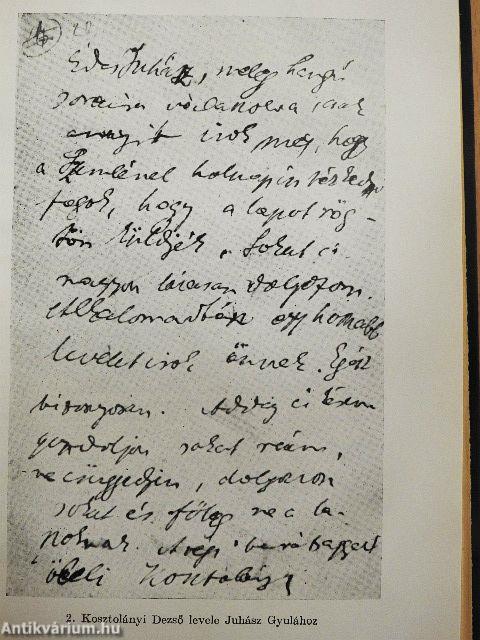 20
Édes Juhász, meleg hangú
soraira válaszolva csak
annyit írok meg, hogy
a Szemlénél holnap
fogok, hogy a lapot rög-
tön küldjék. Sokat és
nagyon lázasan dolgozom.
egy hosszabb
levelet írok önnek. Egész
bizonyosan. Addig is kérem
gondoljon sokat reám,
ne csüggedjen, dolgozzon
sokat és főleg ne a la-
poknak. A régi barátsággal
öleli Kosztolányi
2. Kosztolányi Dezső levele Juhász Gyulához
Antikvárium.hu